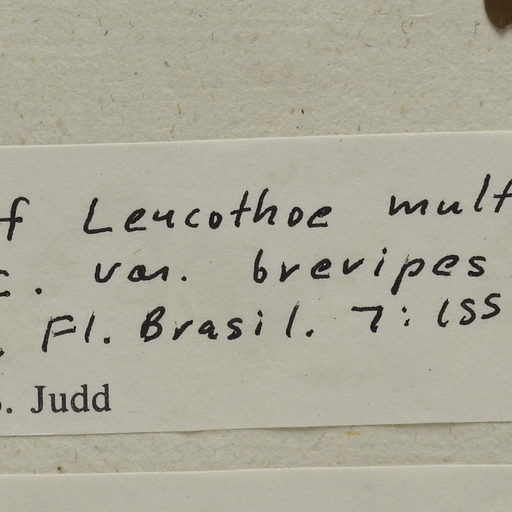 f Leucothoe mult
c. var. brevipes
, Fl. Brasil. 7: 155
S. Judd